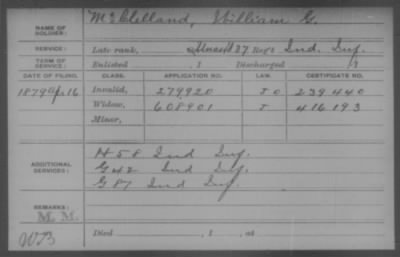 NAME OF SOLDIER: McClelland, William G.
SERVICE: Late rank, Unass'd 87 Reg't Ind. Inf.
TERM OF SERVICE: Enlisted , 1 Discharged , 1
DATE OF FILING. CLASS. APPLICATION NO. LAW. CERTIFICATE NO.
1879 Apr 16 Invalid, 279920 239440
Widow, 608901 416193
Minor,
ADDITIONAL SERVICES:
H 58 Ind Inf.
G 42 Ind Inf.
G 87 Ind Inf.
REMARKS:
M. M.
Died , 1 , at